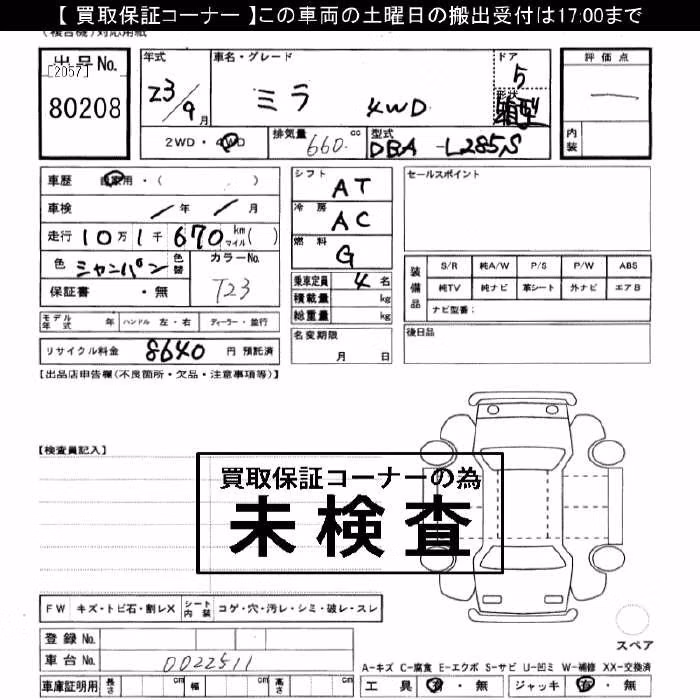 【 買取保証コーナー 】この車両の土曜日の搬出受付は17:00まで
(複合機)対応用紙
出品No.
[2057]
80208
年式
23/9月
車名・グレード
ミラ 4WD
ドア
5
形状
箱型
評価点
内装
2WD・4WD
排気量
660 cc
型式
DBA-L285S
車歴 自家用・( )
車検 / 年 / 月
走行 10万1千670 km マイル( )
色 シャンパン 色替
カラーNo.
T23
保証書 ・無
シフト AT
冷房 AC
燃料 G
乗車定員 4 名
積載量 kg
総重量 kg
セールスポイント
装備品
S/R 純A/W P/S P/W ABS
純TV 純ナビ 革シート 外ナビ エアB
ナビ型番:
モデル年式 年 ハンドル 左・右 ディーラー・並行
名変期限
月 日
後日品
リサイクル料金 8640 円 預託済
【出品店申告欄(不良箇所・欠品・注意事項等)】
【検査員記入】
買取保証コーナーの為
未検査
FW キズ・トビ石・割レX シート内装 コゲ・穴・汚レ・シミ・破レ・スレ
登録No.
車台No. 0022511
車庫証明用 長さ cm 幅 cm 高さ cm
スペア
A-キズ C-腐食 E-エクボ S-サビ U-凹ミ W-補修 XX-交換済
工具 有・無 ジャッキ 有・無